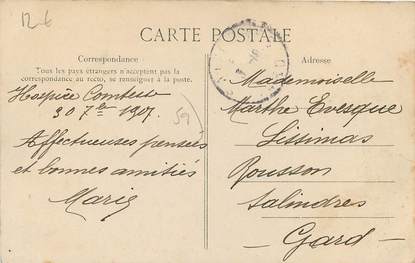 12-6
CARTE POSTALE
Correspondance
Tous les pays étrangers n'acceptent pas la
correspondance au recto, se renseigner à la poste.
Adresse
Hospice Comtesse
30 7bre 1907
59
Affectueuses pensées
et bonnes amitiés
Marie
Mademoiselle
Marthe Evesque
Rousson
Salindres
- Gard -